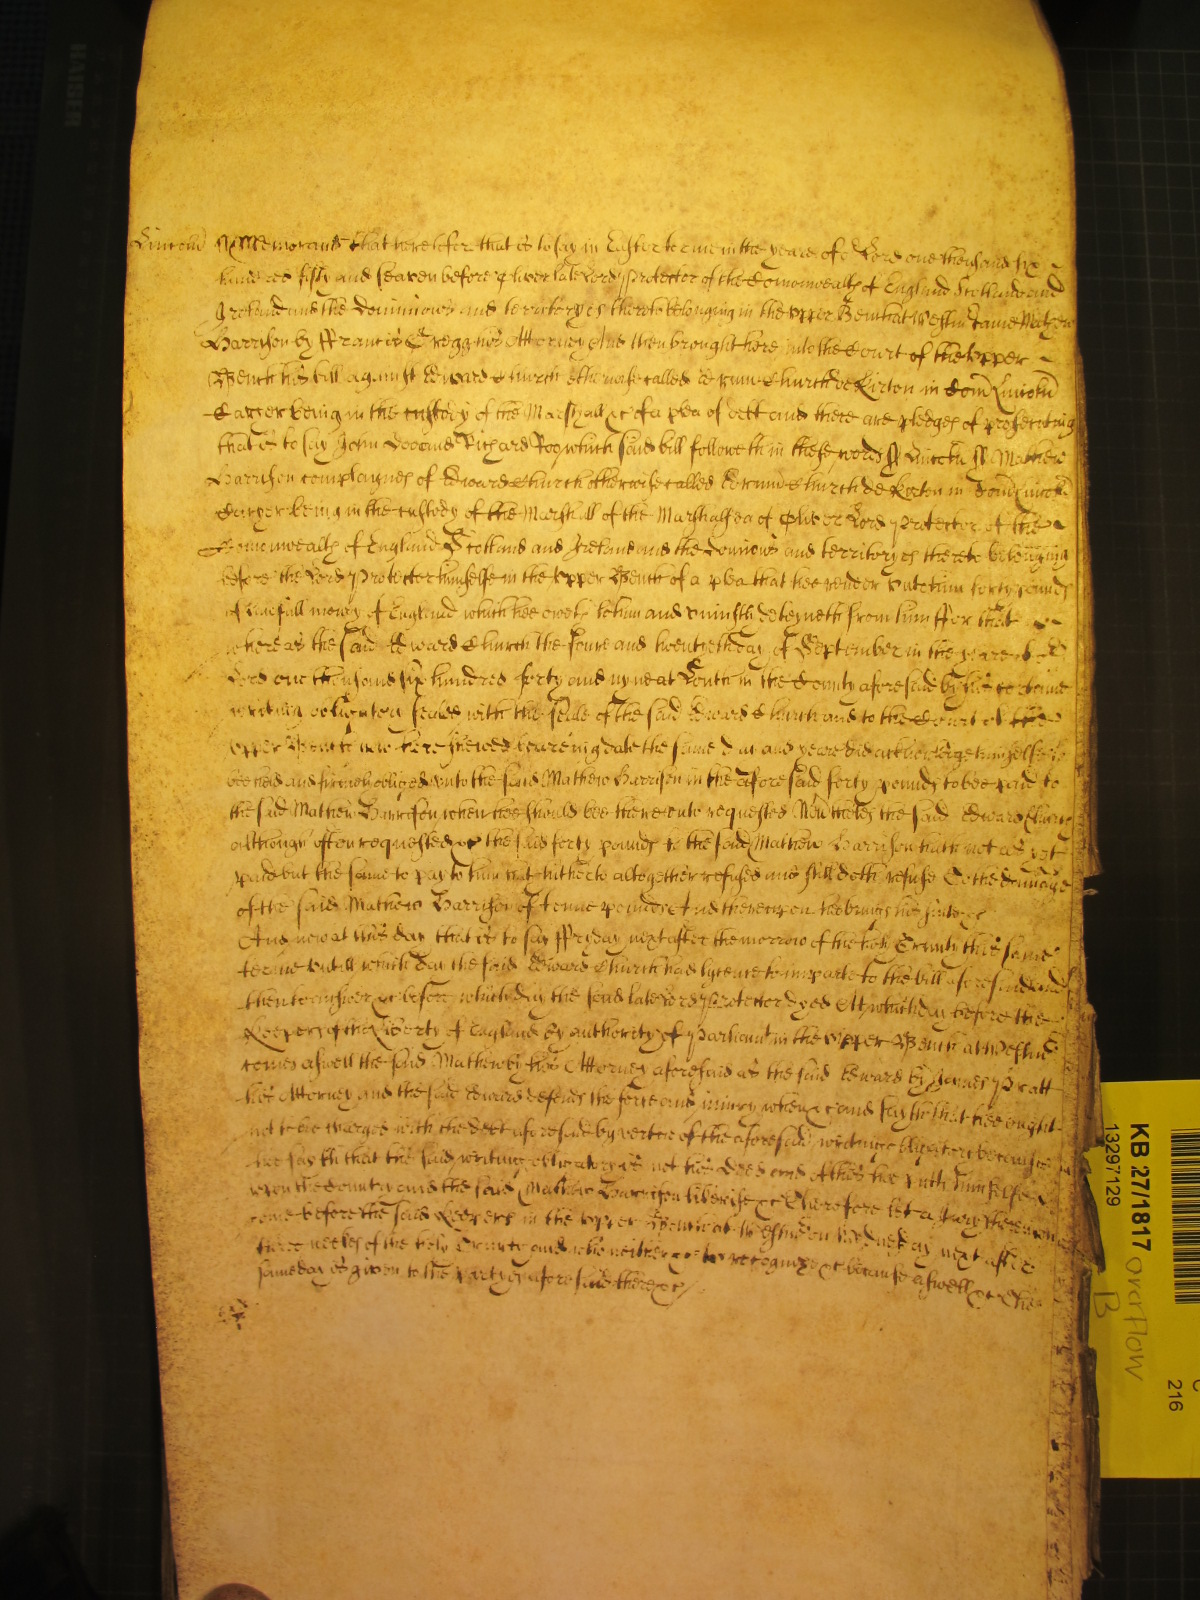 Lincoln ss Memorand that heretofore that is to say in Easter terme in the yeare of or Lord one thousand six
hundred fifty and seaven before Oliver late Lord Protector of the Comonwealth of England Scotland and
Ireland and the Dominions and territoryes thereto belonging in the upper Bench at Westm came Mathew
Harrison by Francis Gregg his Attorney And then brought here into the Court of the Upper
Bench his bill against Edward Church otherwise called Edward Church de Kirton in Com Lincoln
being in the custody of the Marshall &c of a plea of debt and there are pledges of prosecuting
that is to say John Doo and Richard Roo which said bill followeth in these words ss Lincoln ss Mathew
Harrison complaynes of Edward Church otherwise called Edward Church de Kirton in Com Lincoln
being in the custody of the Marshall of the Marshalsea of Oliver Lord Protector of the
Comonwealth of England Scotland and Ireland and the Dominions and territoryes thereto belonging
before the Lord Protector himselfe in the Upper Bench of a plea that hee render unto him forty pounds
of lawfull money of England which hee oweth to him and uniustly deteyneth from him For that
whereas the said Edward Church the foure and twentieth day of September in the yeare of or
Lord one thousand six hundred forty and nyne at Louth in the County aforesaid by his certeine
writing obligatory sealed with the seale of the said Edward Church and to the Court of the
Upper Bench now here shewed beareing date the same day and yeare did acknowledge himselfe to
bee held and firmely obliged unto the said Mathew Harrison in the aforesaid forty pounds to bee paid to
the said Mathew Harrison when hee should bee thereunto requested Neverthelesse the said Edward Church
although often requested &c the said forty pounds to the said Mathew Harrison hath not as yet
paid but the same to pay to him hath hitherto altogether refused and still doth refuse To the damage
of the said Mathew Harrison of tenne pounds And thereupon hee brings his suite &c
And now at this day that is to say Fryday next after the morrow of the holy Trinity this same
terme untill which day the said Edward Church had lycence to imparle to the bill aforesaid and
then to answer &c before which day the said late Lord Protector dyed Att which day before the
Keepers of the Liberty of England by authority of Parliamt in the Upper Bench at Westm
comes aswell the said Mathew by his Attorney aforesaid as the said Edward by James Pratt
his Attorney and the said Edward defends the force and iniury when &c and sayth that hee ought
not to be charged with the debt aforesaid by vertue of the aforesaid writing obligatory because
hee sayth that the said writing obligatory is not his deed And of this hee putts himselfe
upon the Country and the said Mathew Harrison likewise &c Therefore let a Jury thereupon
come before the said Keepers in the Upper Bench at Westm on Wednesday next after
three weekes of the holy Trinity and who neither &c to recognize &c because aswell &c The
same day is given to the partyes aforesaid there &c
KB 27/1817
13297129
Overflow
B
216